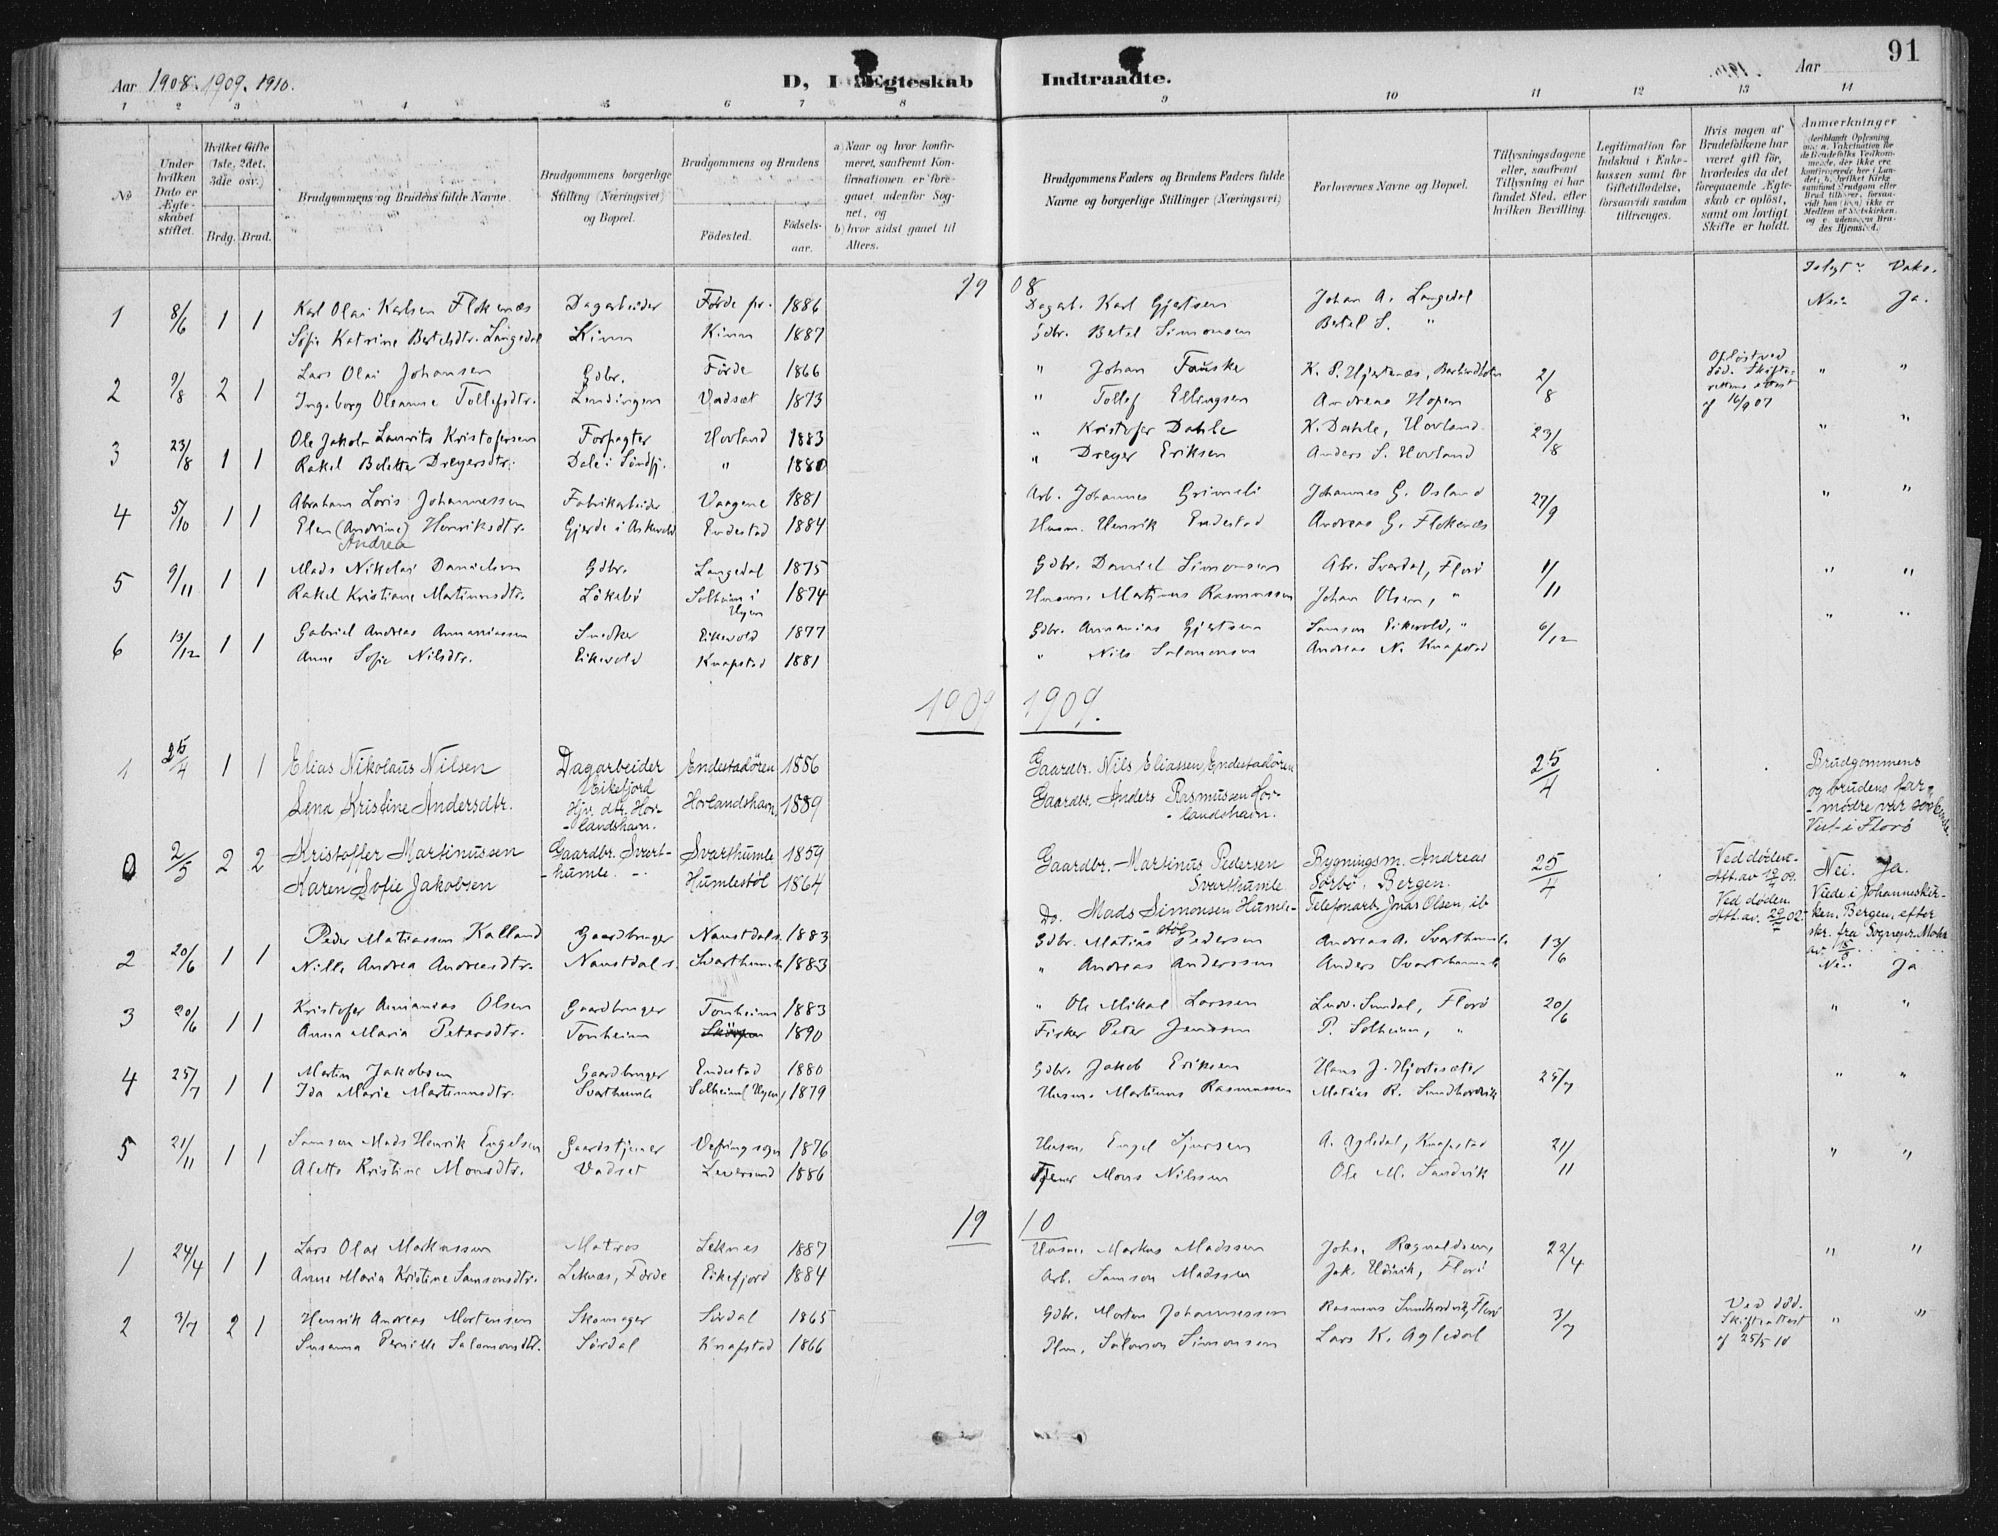 91
Aar 1908. 1909. 1910.
D, I Ægteskab Indtraadte.
Aar
1 2 3 4 5 6 7 8 9 10 11 12 13 14
No
Under hvilken Dato er Ægteskabet stiftet.
Hvilket Gifte (1ste, 2det, 3die osv.)
Brdg. Brud.
Brudgommens og Brudens fulde Navne.
Brudgommens borgerlige Stilling (Næringsvei) og Bopæl.
Brudgommens og Brudens
Fødested. Fødselsaar.
a) Naar og hvor konfirmeret, saafremt Konfirmationen er foregaaet udenfor Sognet, og
b) hvor sidst gaaet til Alters.
Brudgommens Faders og Brudens Faders fulde Navne og borgerlige Stillinger (Næringsvei)
Forlovernes Navne og Bopæl.
Tillysningsdagene eller, saafremt Tillysning ei har fundet Sted, efter hvilken Bevilling.
Legitimation for Indskud i Enkekassen samt for Giftetilladelse, forsaavidt saadan tiltrænges.
Hvis nogen af Brudefolkene har været gift før, hvorledes da det foregaaende Ægteskab er opløst, samt om lovligt Skifte er holdt.
Anmærkninger
1908
Vaks.
1 8/6 1 1 Karl Olai Karlsen Flokenæs Dagarbeider Førde pr. 1886 Dagarb. Karl Gjertsen Johan A. Langedal Nei. Ja.
Sofie Katrine Bertelsdtr. Langedal Kinn Kinn 1887 Gdbr. Bertel Simonsen Bertel S. "
2 9/8 2 1 Lars Olai Johansen Gdbr. Førde 1866 " Johan Fauske 2/8 Opløst ved død. " "
Ingeborg Oleanne Tollefsdtr. Lendingen Vadsæt 1873 " Tollef Ellingsen Andreas Hopen af 16/9 07
3 23/8 1 1 Ole Jakob Laurits Kristofersen Forpagter Hovland 1883 " Kristofer Dahle K. Dahle, Hovland 23/8 " "
Rakel Bolette Dreyersdtr. Dale i Søndfj. " 1880 " Dreyer Eriksen Anders S. Hovland
4 5/10 1 1 Abraham Loris Johannessen Fabrikarbeider Vaagene 1881 Arb. Johannes Grimeli Johannes G. Osland 27/9 " "
Elen (Andrine) Henriksdtr. Gjerde i Askevold Endestad 1884 Husm. Henrik Endestad Andreas G. Flokenæs
Andrea
5 9/11 1 1 Mads Nikolai Danielsen Gdbr. Langedal 1875 Gdbr. Daniel Simonsen Abr. Svardal, Florø 1/11 " "
Rakel Kristiane Martinusdtr. Løkebø Solheim i Hyen 1874 Husm. Martinus Rasmussen Johan Olsen, "
6 13/12 1 1 Gabriel Andreas Ananiassen Snedker Eikevold 1877 Gdbr. Annanias Gjertsen Samson Eikevold, " 6/12 " "
Anne Sofie Nilsdtr. Eikevold Knapstad 1881 " Nils Salomonsen Andreas N. Knapstad
1909 1909.
1 25/4 1 1 Elias Nikolaus Nilsen Dagarbeider Eikefjord Endestadøren 1886 Gaardbr. Nils Eliassen, Endestadøren 25/4 Brudgommens
Lena Kristine Andersdtr. Hjv. dtr. Hovlandshavn. Hovlandshavn 1889 Gaardbr. Anders Rasmussen Hovlandshavn. og brudens far-
Viet i Florø
2/5 2 2 Kristoffer Martinussen Gaardbr. Svarthumle Svarthumle 1859 Gaardbr. Martinus Pedersen Svarthumle Bygningsm. Andreas Sørbø, Bergen. 25/4 Nei. Ja.
Karen Sofie Jakobsen Humlestøl 1864 Do. Mads Simonsen Humlestøl Telefonarb. Jonas Olsen, ib Viede i Johanneskirken, Bergen, efter
2 20/6 1 1 Peder Matiassen Kalland Gaardbruger Naustdal s. 1883 Gdbr. Matias Pedersen Andreas A. Svarthumle 13/6 Nei Ja
Nille Andrea Andreasdtr. Naustdal s. Svarthumle 1883 " Andreas Anderssen Anders Svarthumle
3 20/6 1 1 Kristofer Annanias Olsen Gaardbruger Tonheim 1883 " Ole Mikal Larssen Ludv. Sundal, Florø 20/6 " "
Anna Maria Petersdtr. Tonheim 1890 Fisker Peter Jenssen P. Solheim, "
4 25/7 1 1 Morten Jakobsen Gaardbruger Endestad 1880 Gdbr. Jakob Eriksen Hans J. Hjortesæter 25/7 " "
Ida Marie Martinusdtr. Svarthumle Solheim (Hyen) 1879 Husm. Martinus Rasmussen Matias R. Sundhordvik
5 21/11 1 1 Samson Mads Henrik Engelsen Gaardstjener Vefring sogn 1876 Husm. Engel Sjursen A. Agledal, Knapstad 21/11 " "
Alette Kristine Monsdtr. Vadset Leversund 1886 Tjener Mons Nilssen Ole M. Sandvik
1910
1 24/4 1 1 Lars Olai Markussen Matros Leknes 1887 Husm. Markus Madssen Johs. Ragnvaldsen, 22/4 " "
Anne Maria Kristine Samsonsdtr. Leknæs, Førde Eikefjord 1884 Arb. Samson Madssen Jak. Udvik, Florø
2 3/7 2 1 Henrik Andreas Mortensen Skomager Sørdal 1865 Gdbr. Morten Johannessen Rasmus Sundhordvik, Florø 3/7 Ved død. Skifteattest af 25/5 10 " "
Susanna Pernille Salomonsdtr. Sørdal Knapstad 1866 Plm. Salomon Simonsen Lars K. Agledal